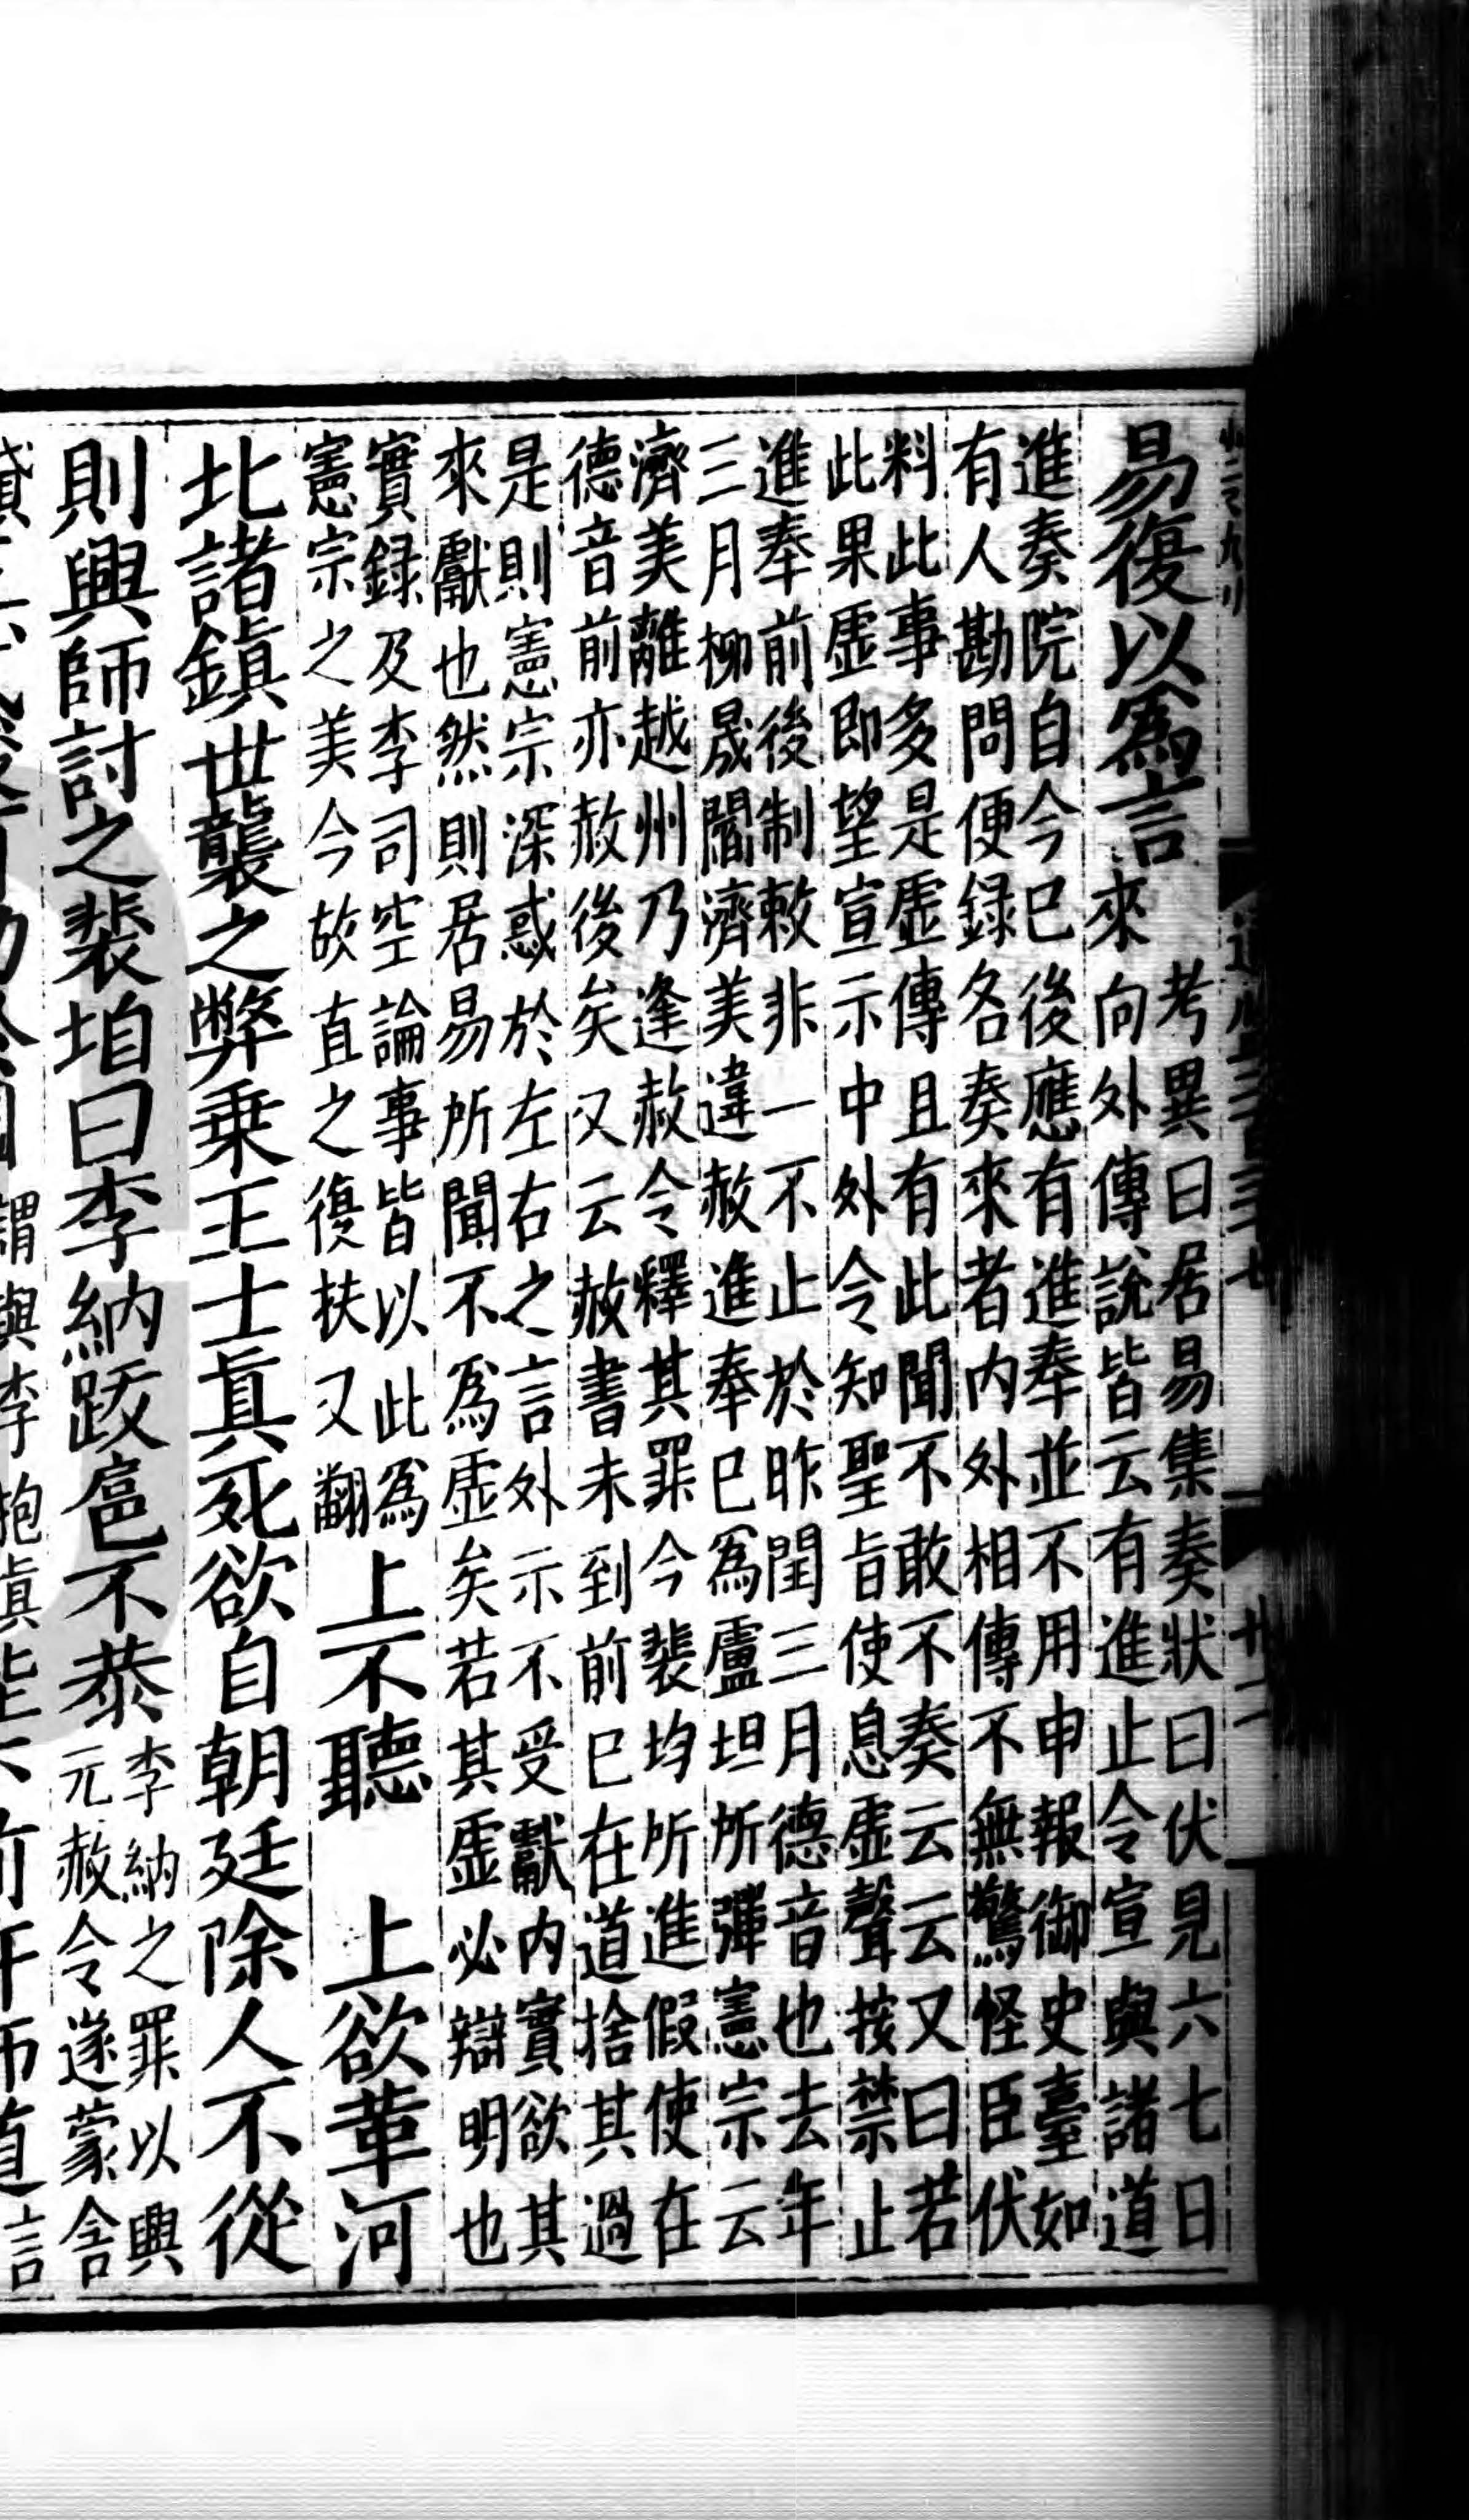 易復以爲言
考異曰居易集奏狀曰伏見六七日
來向外傳說皆云有進止令宣與諸道
進奏院自今已後應有進奉並不用申報御史臺如
有人勘問便録各奏來者内外相傳不無驚怪臣伏
料此事多是虛傳且有此聞不敢不奏云云又曰若
此果虛即望宣示中外令知聖旨使息虛聲按禁止
進奉前後制敕非一不止於昨閏三月德音也去年
三月柳晟閻濟美違赦進奉已爲盧坦所彈憲宗云
濟美離越州乃逢赦令釋其罪今裴均所進假使在
德音前亦赦後矣又云赦書未到前已在道捨其過
是則憲宗深惑於左右之言外示不受獻内實欲其
來獻也然則居易所聞不爲虛矣若其虛必辯明也
實録及李司空論事皆以此爲
憲宗之美今故直之復扶又翻
上不聽 上欲革河
北諸鎮世襲之弊乗王士真死欲自朝廷除人不從
則興師討之裴垍曰李納跋扈不恭
李納之罪以興
元赦令遂蒙舍
謂與李抱眞